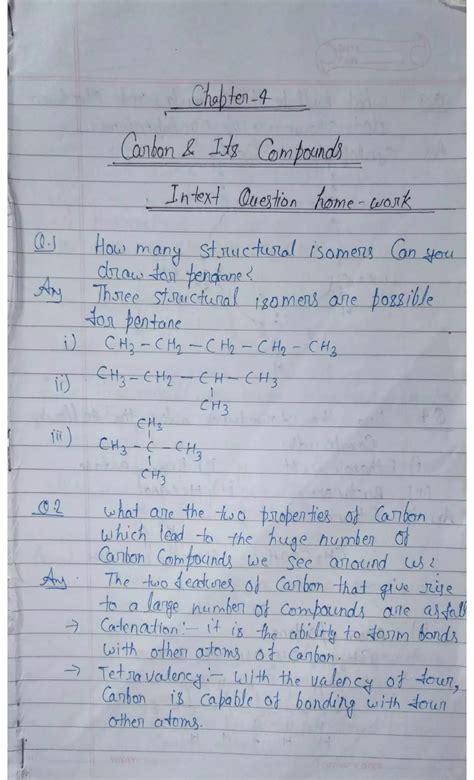 Chapter-4
Carbon & Its Compounds
Intext Question home-work
Q.1 How many structural isomers Can you
draw for pendane?
Ans Three structural isomers are possible
for pentane
i) CH3-CH2-CH2-CH2-CH3
ii) CH3-CH2-CH-CH3
CH3
CH3
iii) CH3-C-CH3
CH3
Q.2 what are the two properties of Carbon
which lead to the huge number of
Carbon Compounds we see around us?
Ans. The two features of Carbon that give rise
to a large number of compounds are as foll
→ Catenation:- it is the ability to form bonds
with other atoms of Carbon.
→ Tetravalency:- with the valency of four,
Carbon is capable of bonding with four
other atoms.